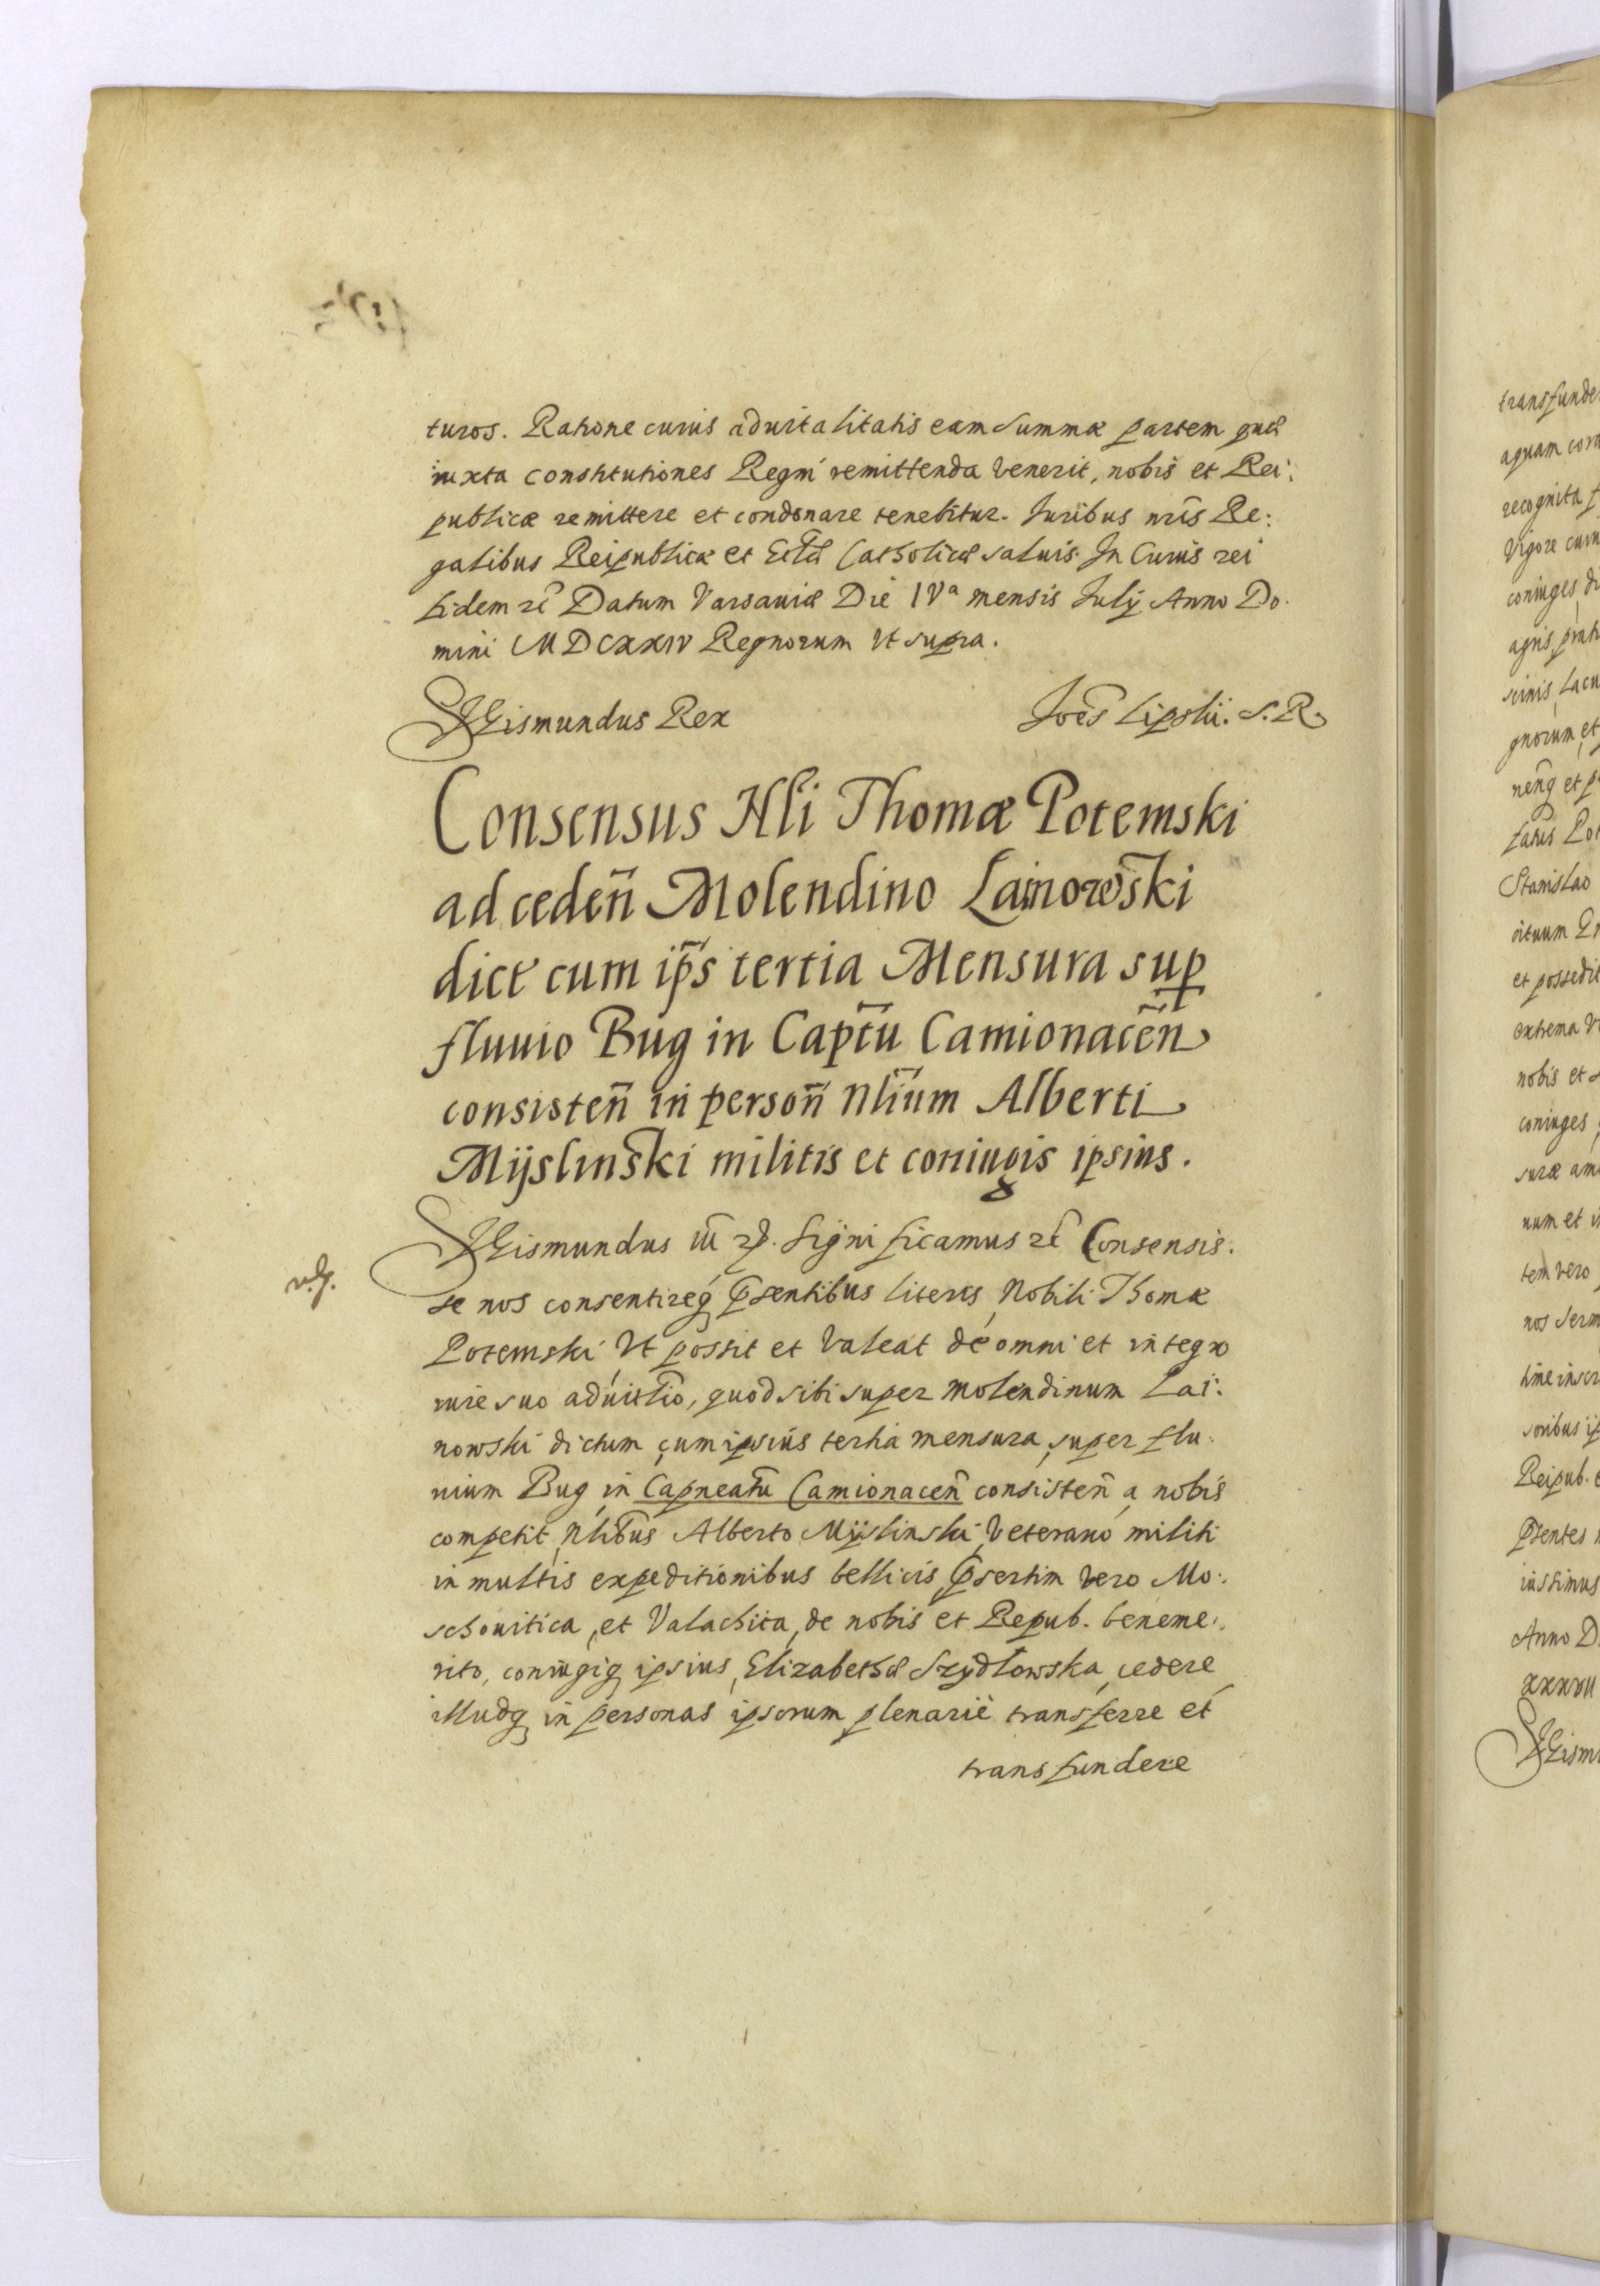 turos. Ratione cuius aduitalitatis eam summæ partem quæ
iuxta constitutiones Regni remittenda venerit, nobis et Rei:
publicæ remittere et condonare tenebitur. Juribus nr̃is Re:
galibus Reipublicæ et Eccłæ Catholicæ saluis. In Cuius rei
fidem zc̃ Datum Varsauiæ Die IVa mensis Julÿ Anno Do.
mini MDCXXIV Regnorum Vt supra.
Sigismundus Rex
Joẽs Lipski. S. R.
Consensus Nłi Thomæ Potemski
ad ceden̄ Molendino Lainowski
dict cum ip̄s tertia Mensura sup̱
fluuio Bug in Capt̄u Camionacen̄
consisten̄ in person̄ Nlīum Alberti
Mijslinski militis et coniugis ipsius.
Sigismundus iii Signi ficamus zc̃ Consensis.
se nos consentireq́ p̃sentibus literis Nobili Thomæ
Potemski Vt possit et Valeat de omni et integro
iure suo aduit̃lio, quod sibi super molendinum Lai:
nowski dictum, cum ipsius tertia mensura, super flu.
uium Bug in Capneat̄u Camionacen̄ consisten̄ a nobis
competit, Nlib̃us Alberto Mijslinski, Veterano militi
in multis expeditionibus bellicis, p̃sertim vero Mo:
schouitica, et Valachica, de nobis et Repub. beneme:
rito, coniugiq ipsius, Elizabethæ Szydłowska, cedere
illudq in personas ipsorum plenariè transferre et
transfundere
transfunde
aquam cora
recognita
Vigore cuiu
coniuges, di
agris, prat
scinis, lacu
gnorum, et
nenq̃ et p
fatus Pot
Stanislao
et possedi
extrema
nobis et
coniuges
suræ am
num et i
tem vero
nos
time inscr
soribus ip
Reipub.
p̃sentes
iussimus
Anno D
XXXVII
Sigism